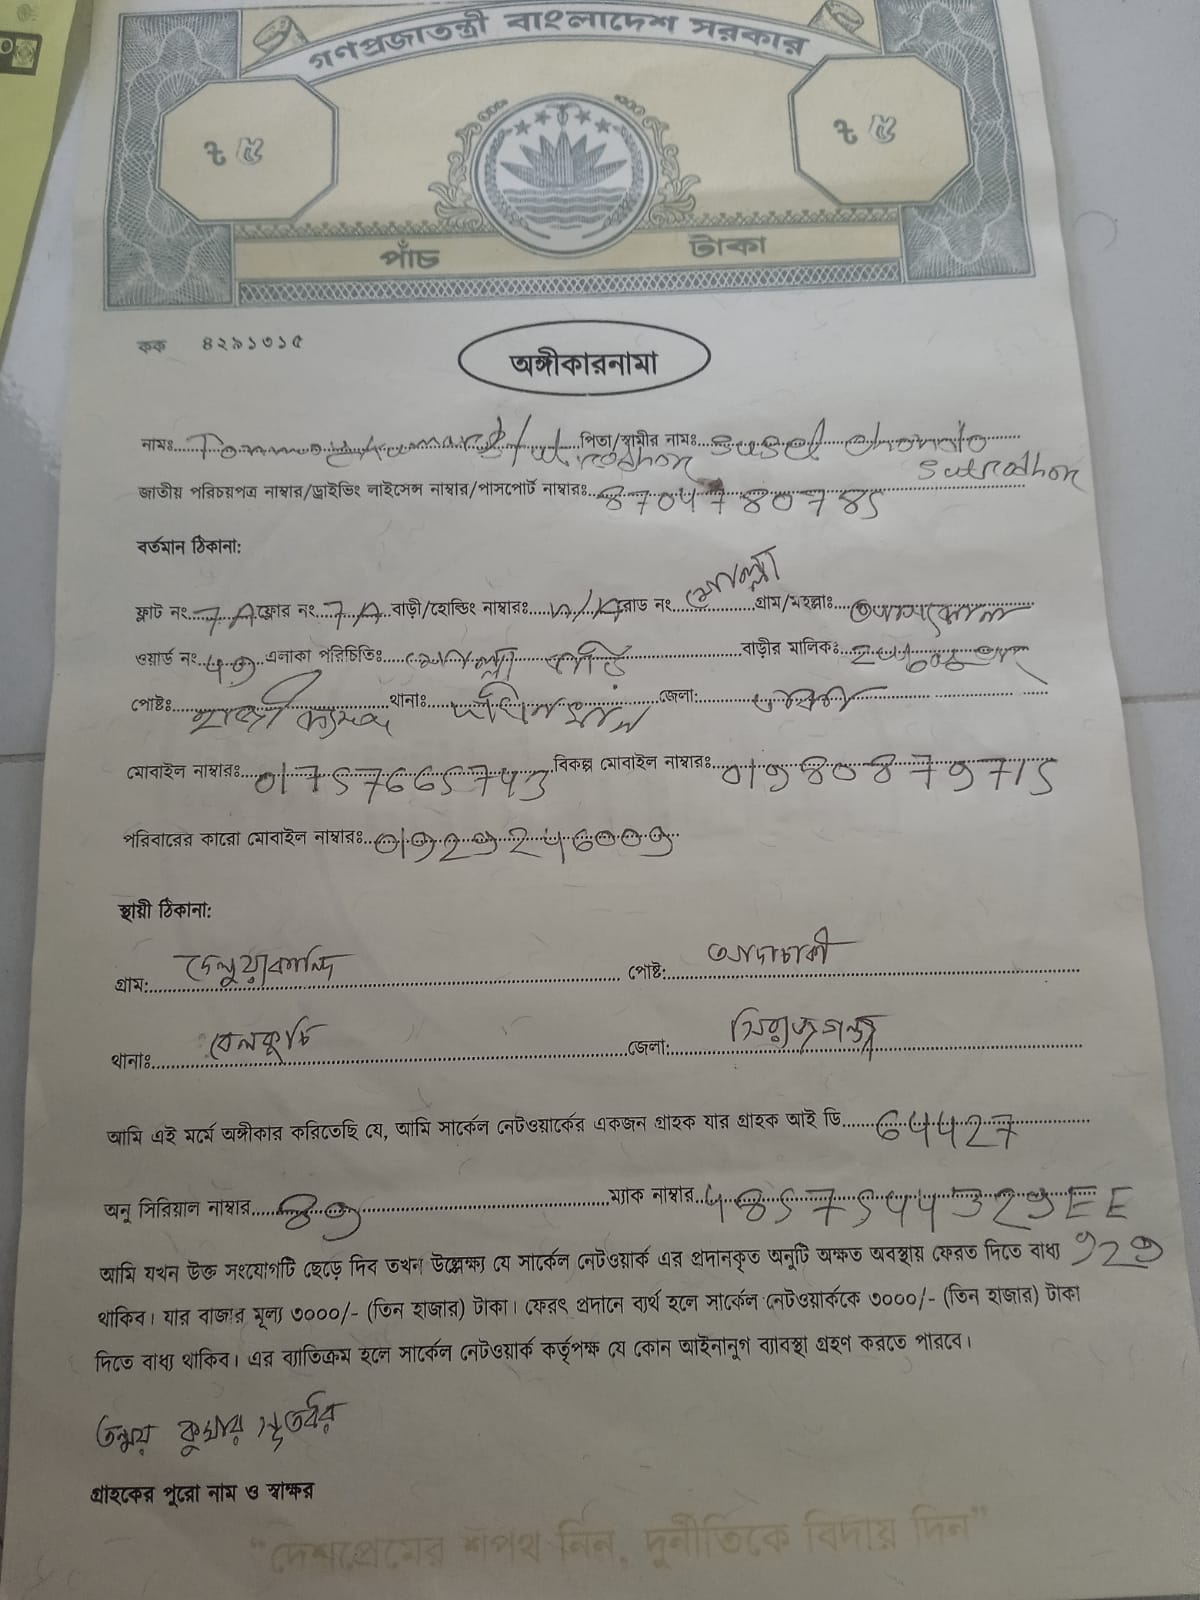 গণপ্রজাতন্ত্রী বাংলাদেশ সরকার
৳ ৫ ৳ ৫
পাঁচ টাকা
কক ৪২৯১৩১৫
অঙ্গীকারনামা
নামঃ পিতা/স্বামীর নামঃ Susel chondro
Sutradhor
জাতীয় পরিচয়পত্র নাম্বার/ড্রাইভিং লাইসেন্স নাম্বার/পাসপোর্ট নাম্বারঃ
বর্তমান ঠিকানা:
ফ্লাট নং 7A ফ্লোর নং 7A বাড়ী/হোল্ডিং নাম্বারঃ রোড নং মোল্লা গ্রাম/মহল্লাঃ
ওয়ার্ড নং এলাকা পরিচিতিঃ মোল্লা বাড়ীর মালিকঃ
পোষ্টঃ থানাঃ জেলা:
মোবাইল নাম্বারঃ বিকল্প মোবাইল নাম্বারঃ
পরিবারের কারো মোবাইল নাম্বারঃ
স্থায়ী ঠিকানা:
গ্রাম: দেলুয়াকান্দি পোষ্ট: আদাচাকী
থানাঃ বেলকুচি জেলা: সিরাজগঞ্জ
আমি এই মর্মে অঙ্গীকার করিতেছি যে, আমি সার্কেল নেটওয়ার্কের একজন গ্রাহক যার গ্রাহক আই ডি 64427
অনু সিরিয়াল নাম্বার ম্যাক নাম্বার
আমি যখন উক্ত সংযোগটি ছেড়ে দিব তখন উল্লেক্ষ্য যে সার্কেল নেটওয়ার্ক এর প্রদানকৃত অনুটি অক্ষত অবস্থায় ফেরত দিতে বাধ্য
থাকিব। যার বাজার মূল্য ৩০০০/- (তিন হাজার) টাকা। ফেরৎ প্রদানে ব্যর্থ হলে সার্কেল নেটওয়ার্ককে ৩০০০/- (তিন হাজার) টাকা
দিতে বাধ্য থাকিব। এর ব্যাতিক্রম হলে সার্কেল নেটওয়ার্ক কর্তৃপক্ষ যে কোন আইনানুগ ব্যাবস্থা গ্রহণ করতে পারবে।
তন্ময় কুমার সূত্রধর
গ্রাহকের পুরো নাম ও স্বাক্ষর
“দেশপ্রেমের শপথ নিন, দুর্নীতিকে বিদায় দিন”